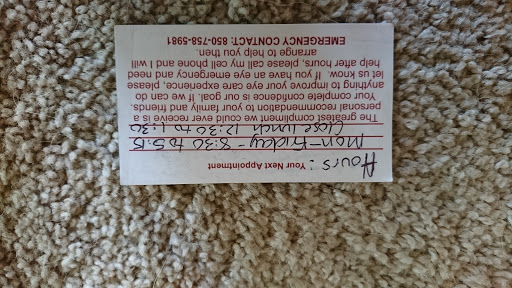 Hours: Your Next Appointment
Mon-Friday - 8:30 to 5:15
Close lunch 12:30 to 1:30
The greatest compliment we could ever receive is a
personal recommendation to your family and friends.
Your complete confidence is our goal. If we can do
anything to improve your eye care experience, please
let us know. If you have an eye emergency and need
help after hours, please call my cell phone and I will
arrange to help you then.
EMERGENCY CONTACT: 850-758-5981